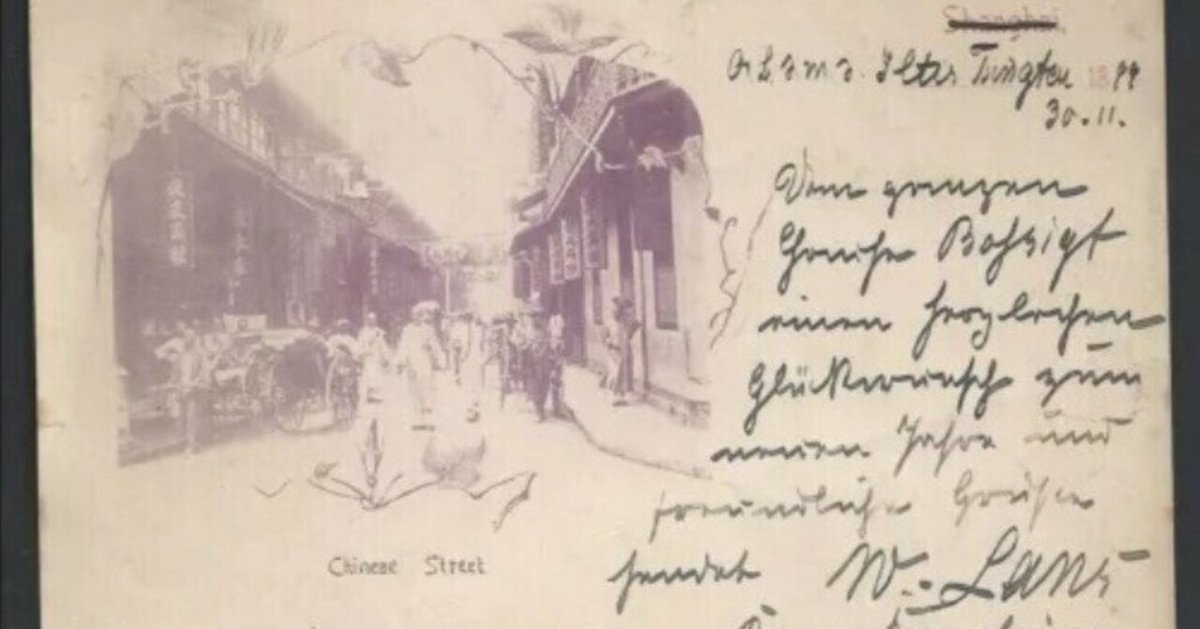 Shanghai.
S. M. S. Iltis Tsingtau 1899
30.11.
Dem ganzen
Hause
einen herzlichen
Glückwunsch zum
neuen Jahre und
freundliche Grüße
sendet W. Lans
Chinese Street